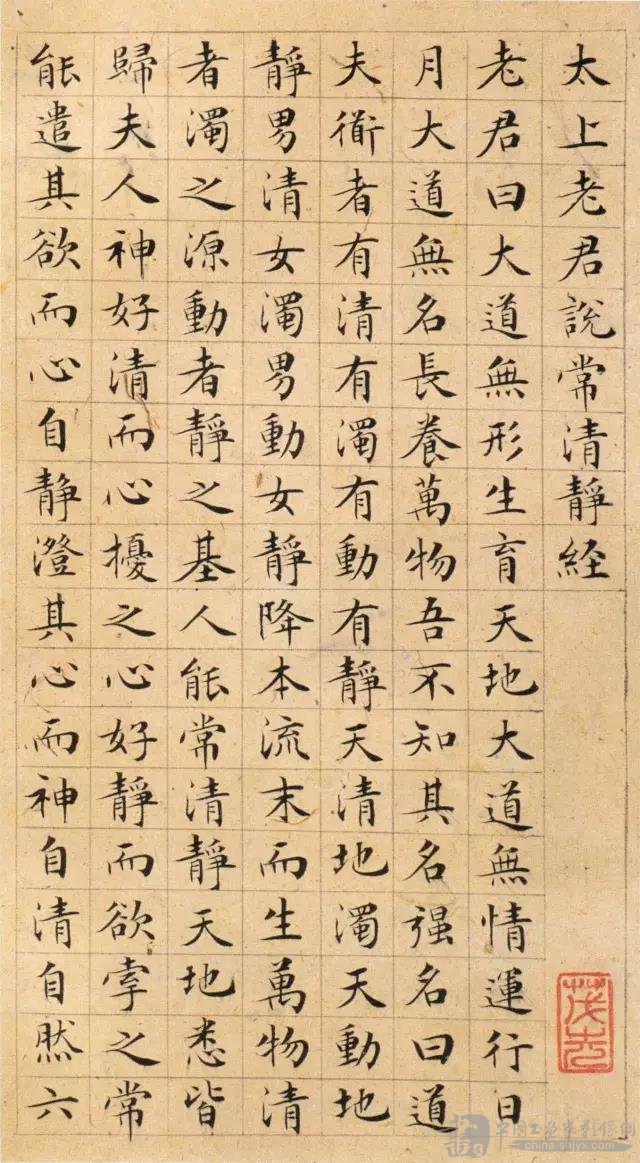 太上老君說常清靜経
老君曰大道無形生育天地大道無情運行日
月大道無名長養萬物吾不知其名强名曰道
夫衜者有清有濁有動有靜天清地濁天動地
靜男清女濁男動女靜降本流末而生萬物清
者濁之源動者靜之基人能常清靜天地悉皆
歸夫人神好清而心擾之心好靜而欲牽之常
能遣其欲而心自静澄其心而神自清自然六
china-shjyx.com